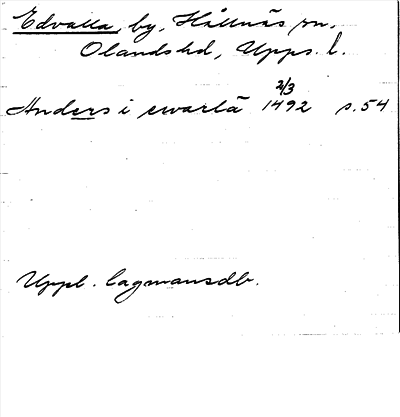 Edvalla, by, Hållnäs sn.
Olands hd, Upps. l.
2/3
Anders i ewarlā 1492 s. 54
Uppl. lagmansdb.